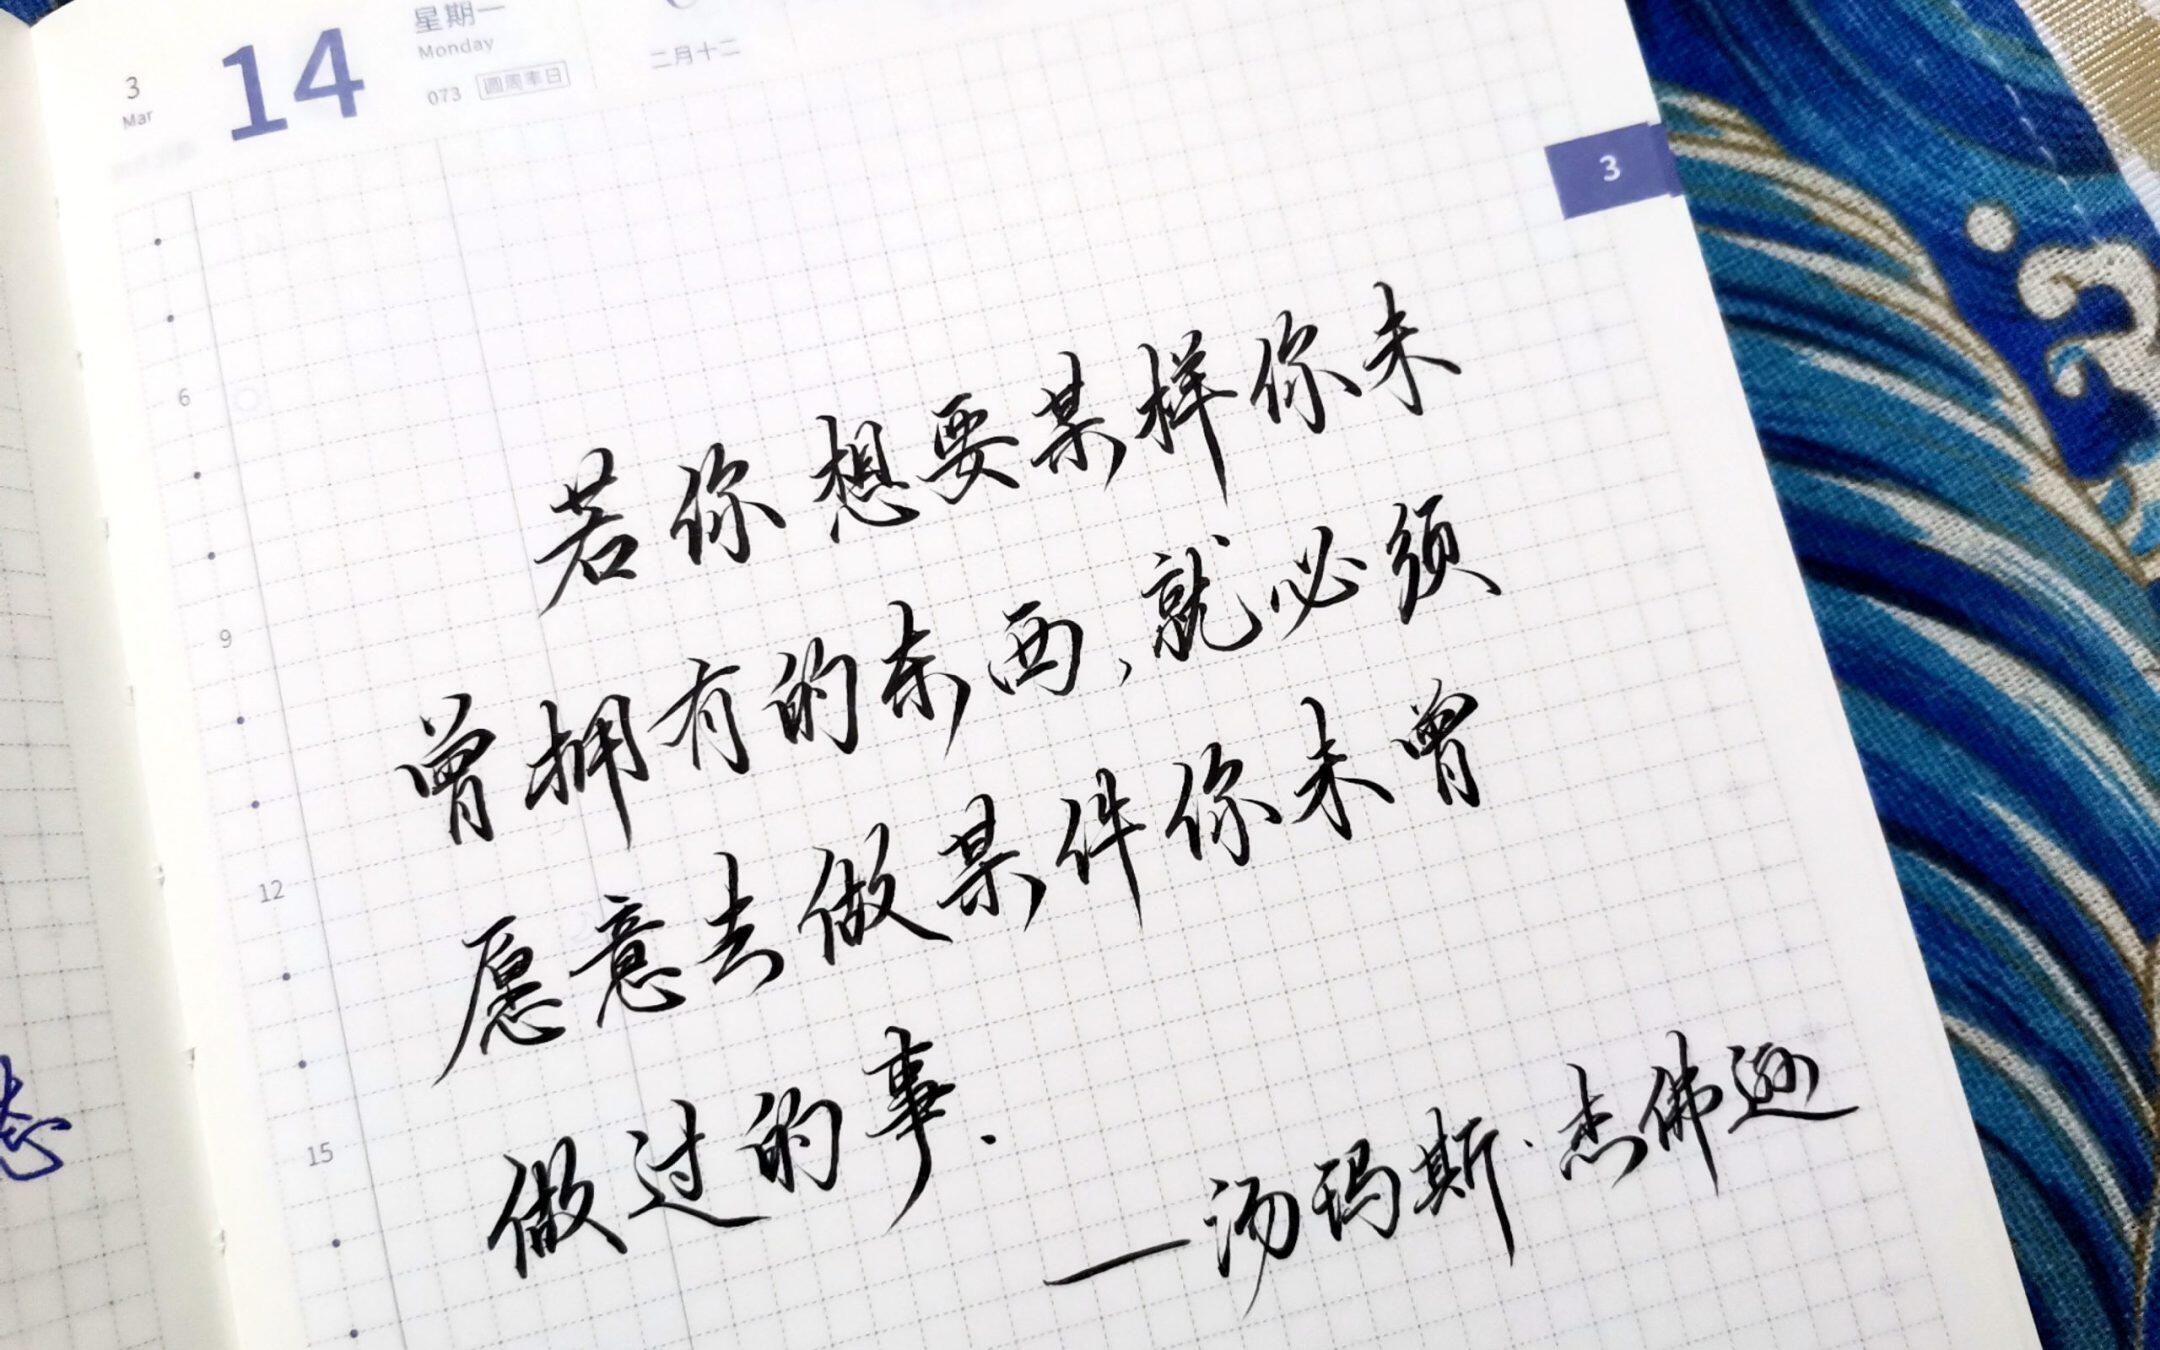 3
Mar
14
星期一
Monday
073 圆周率日
二月十二
3
6
9
12
15
若你想要某样你未
曾拥有的东西,就必须
愿意去做某件你未曾
做过的事.
—汤玛斯·杰佛逊